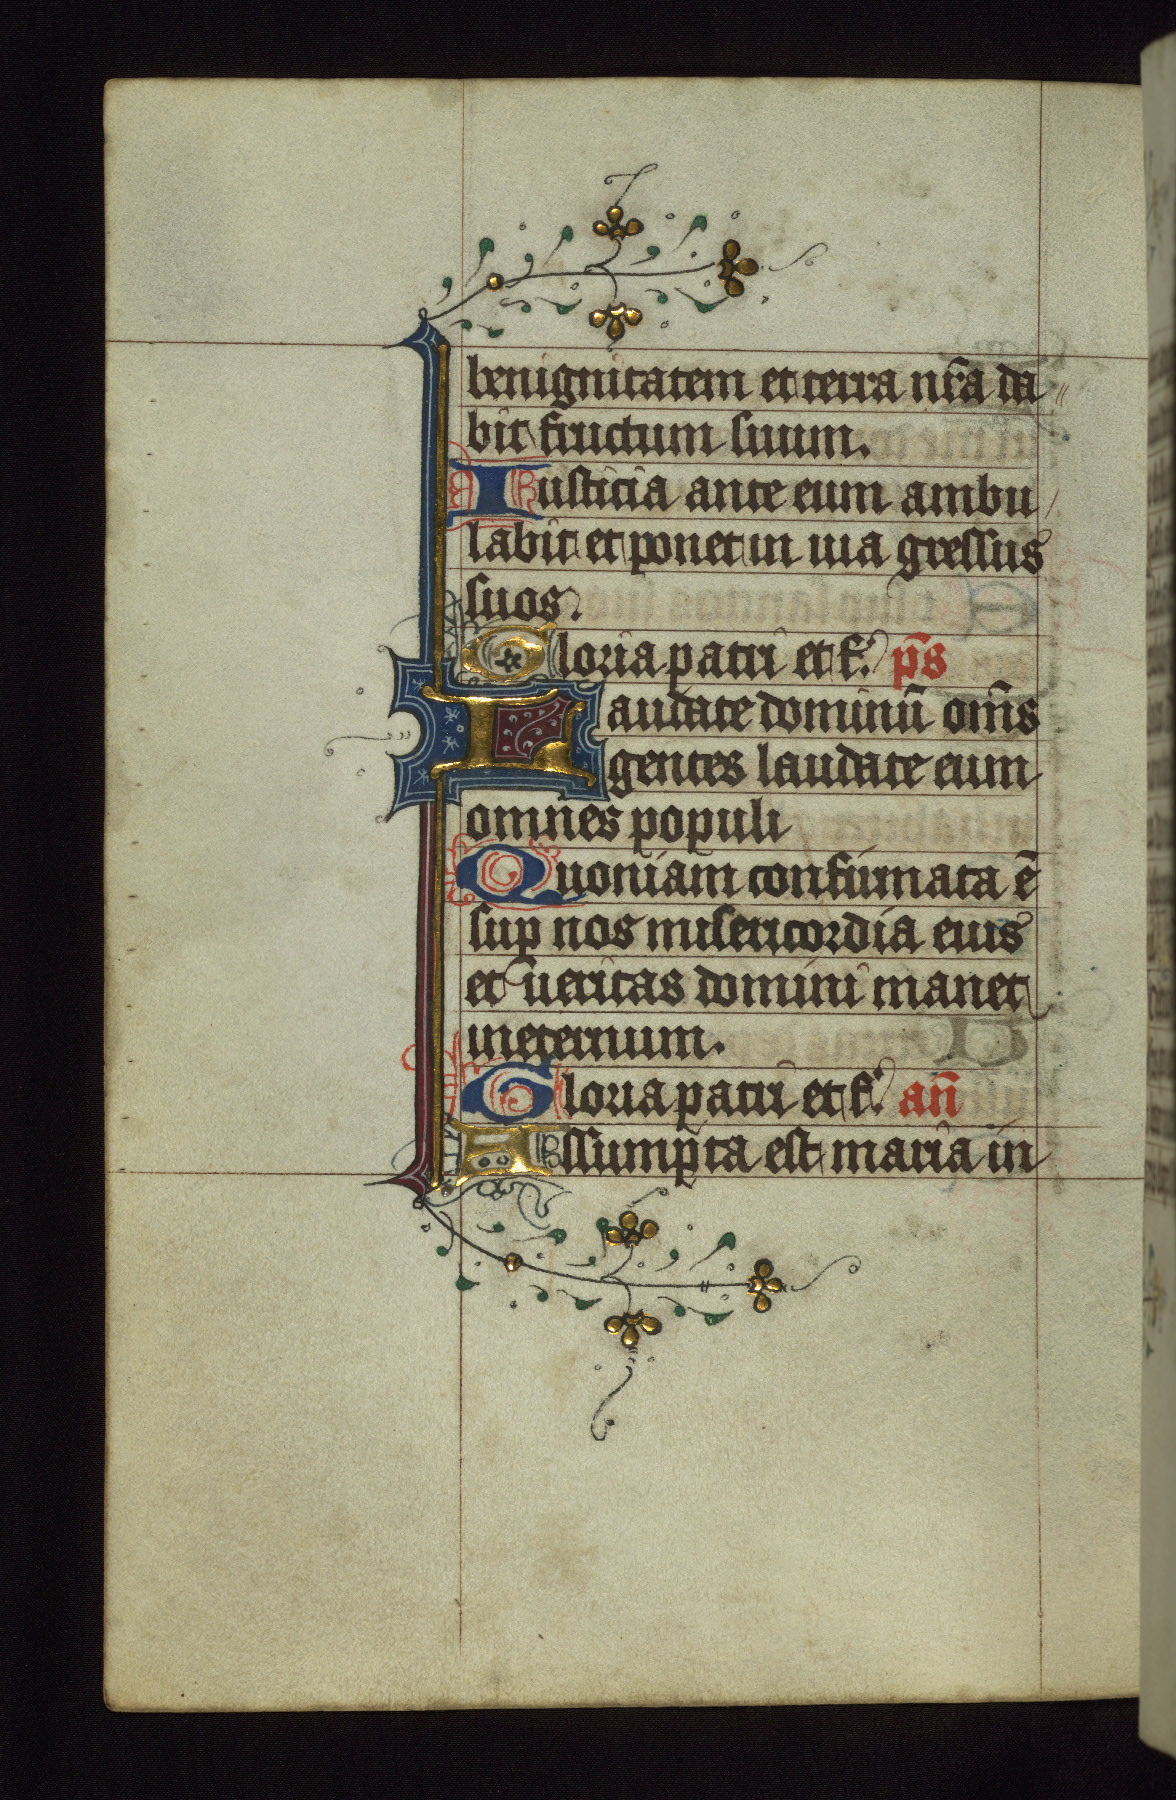 benignitatem et terra nr̄a da〃
bit fructum suum.
Iusticia ante eum ambu/
labit et ponet in uia gressus
suos.
Gloria patri et f. ps̄
Laudate dominū om̄s
gentes laudate eum
omnes populi
Quoniam confirmata ē
sup nos misericordia eius
et ueritas domini manet
ineternum.
Gloria patri et f. an̄
Assump̄ta est maria in